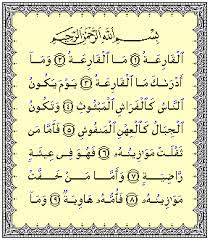 بِسْمِ اللَّهِ الرَّحْمَٰنِ الرَّحِيمِ
ٱلْقَارِعَةُ ١ مَا ٱلْقَارِعَةُ ٢ وَمَآ
أَدْرَىٰكَ مَا ٱلْقَارِعَةُ ٣ يَوْمَ يَكُونُ
ٱلنَّاسُ كَٱلْفَرَاشِ ٱلْمَبْثُوثِ ٤ وَتَكُونُ
ٱلْجِبَالُ كَٱلْعِهْنِ ٱلْمَنفُوشِ ٥ فَأَمَّا مَن
ثَقُلَتْ مَوَٰزِينُهُۥ ٦ فَهُوَ فِى عِيشَةٍ
رَّاضِيَةٍ ٧ وَأَمَّا مَنْ خَفَّتْ
مَوَٰزِينُهُۥ ٨ فَأُمُّهُۥ هَاوِيَةٌ ٩ وَمَآ